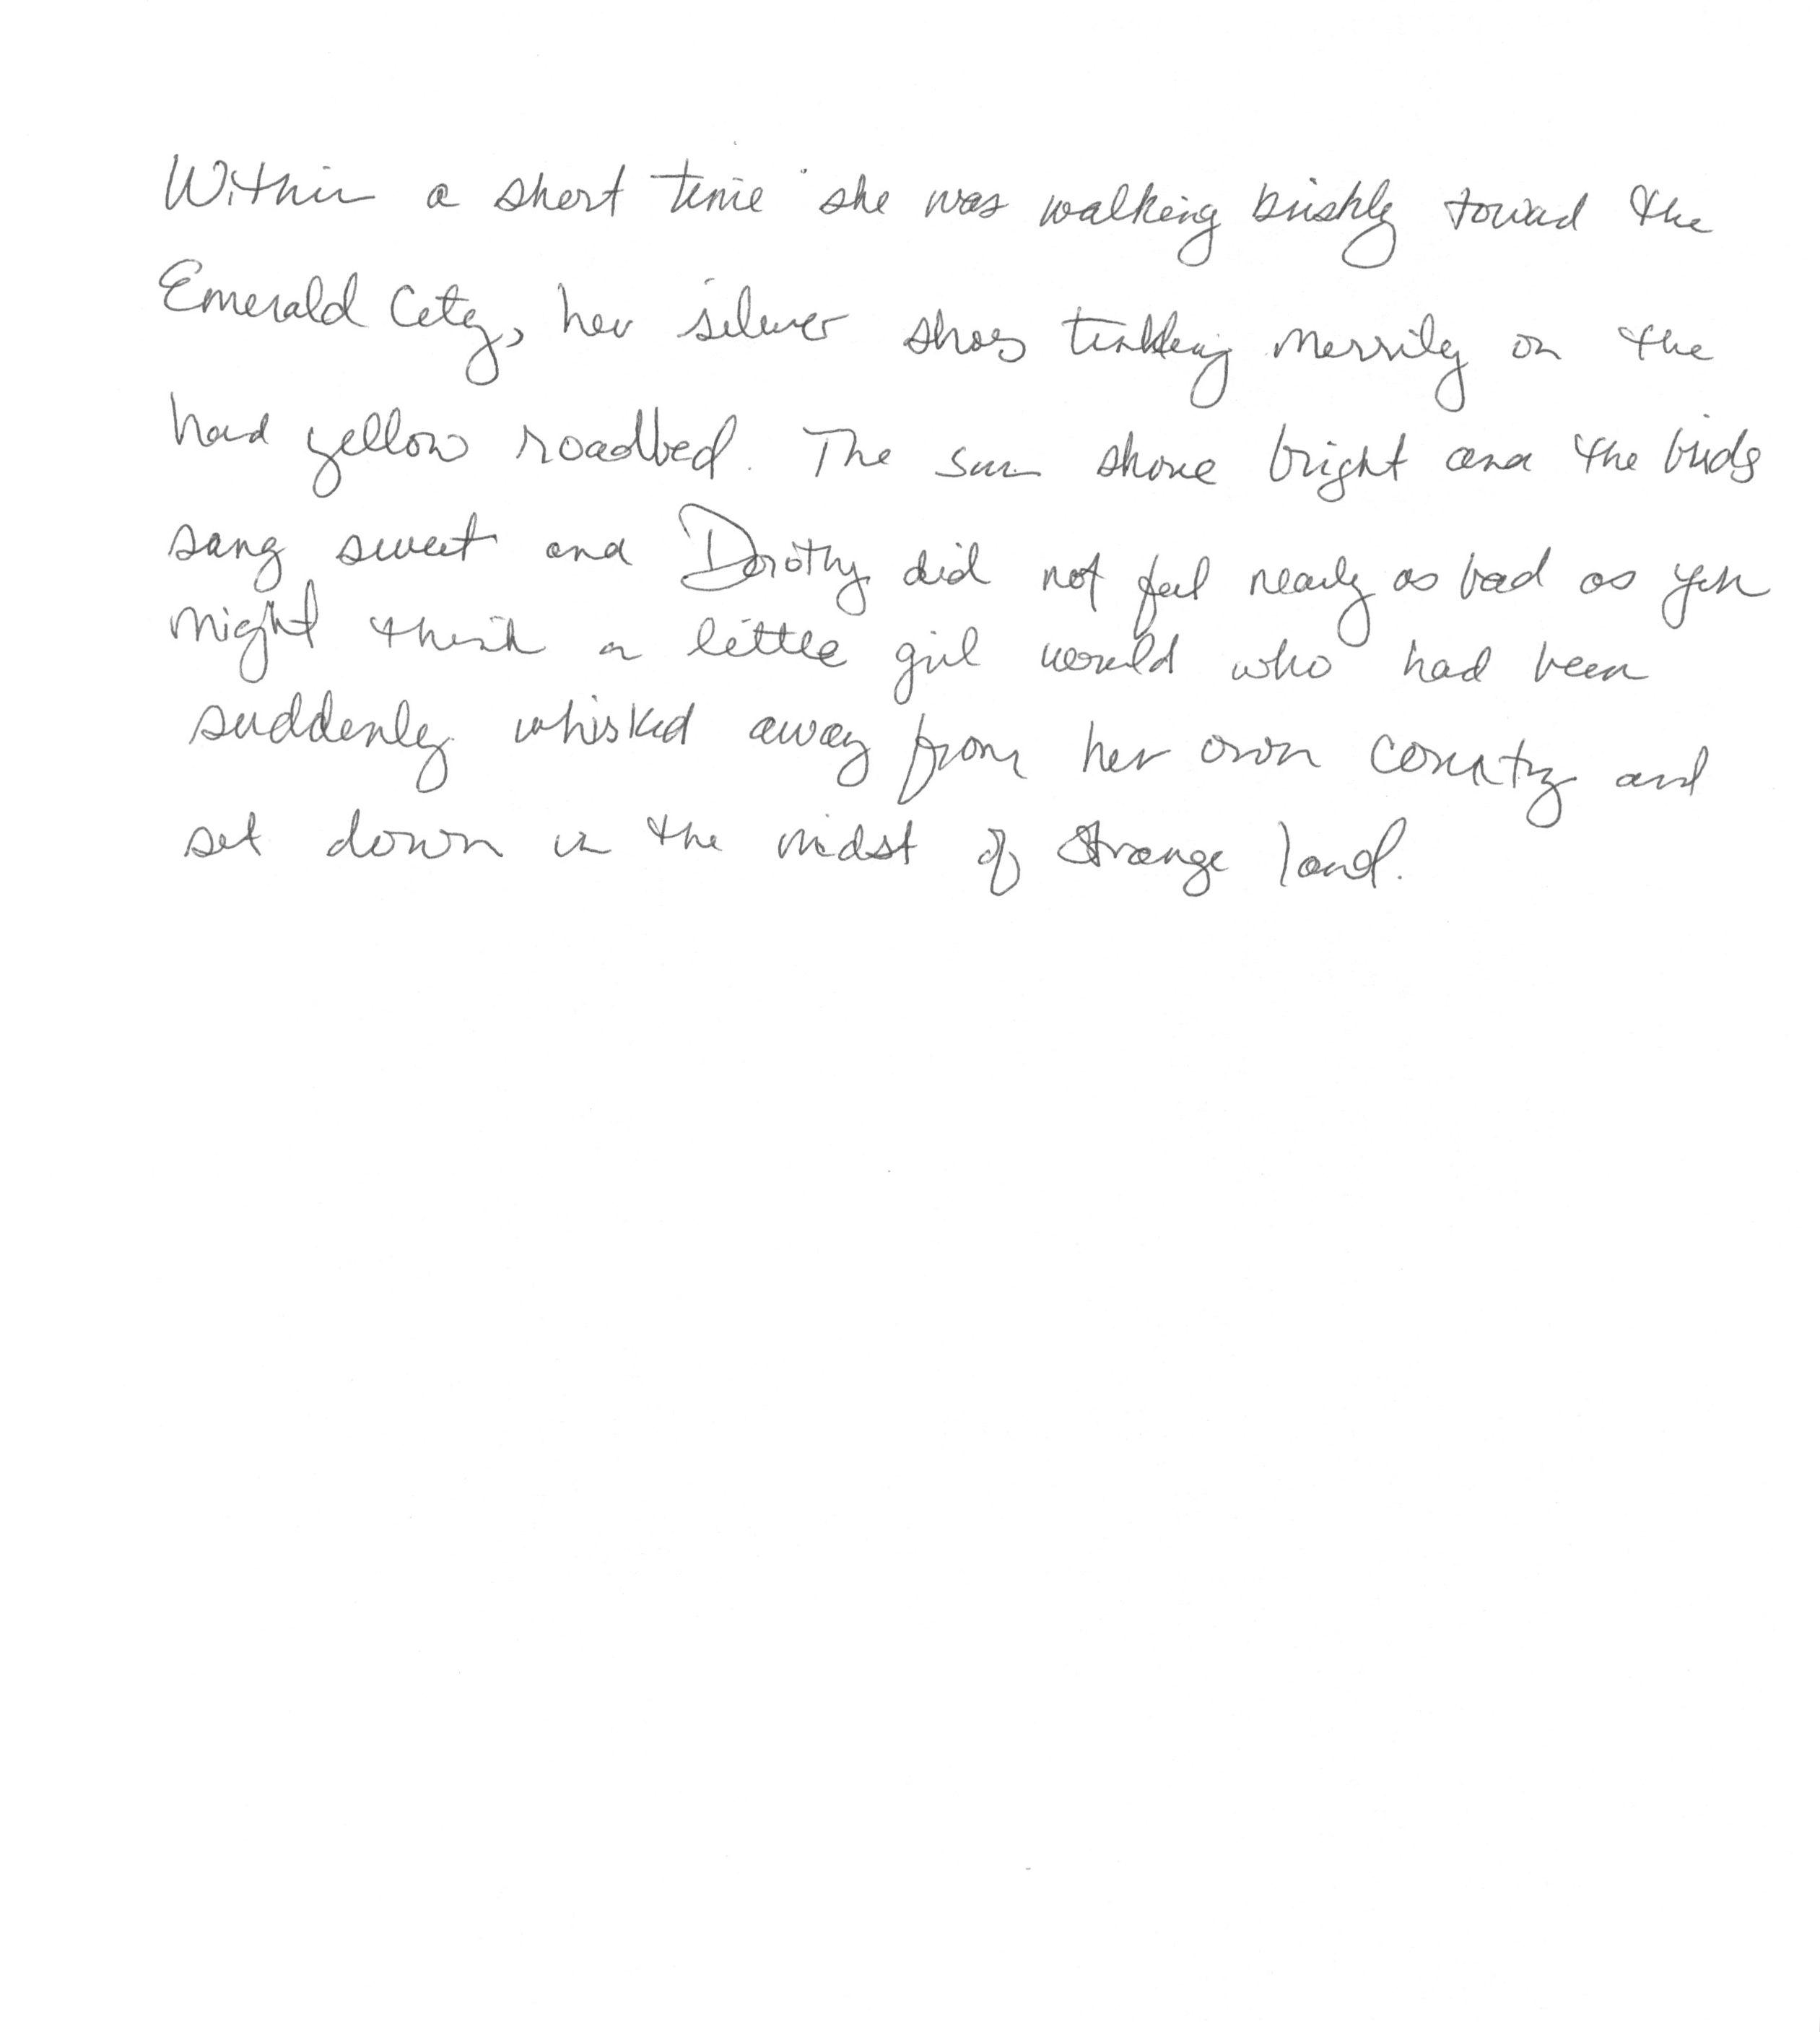 Within a short time she was walking briskly toward the
Emerald City, her silver shoes tinkling merrily on the
hard yellow roadbed. The sun shone bright and the birds
sang sweet and Dorothy did not feel nearly as bad as you
might think a little girl would who had been
suddenly whisked away from her own country and
set down in the midst of strange land.